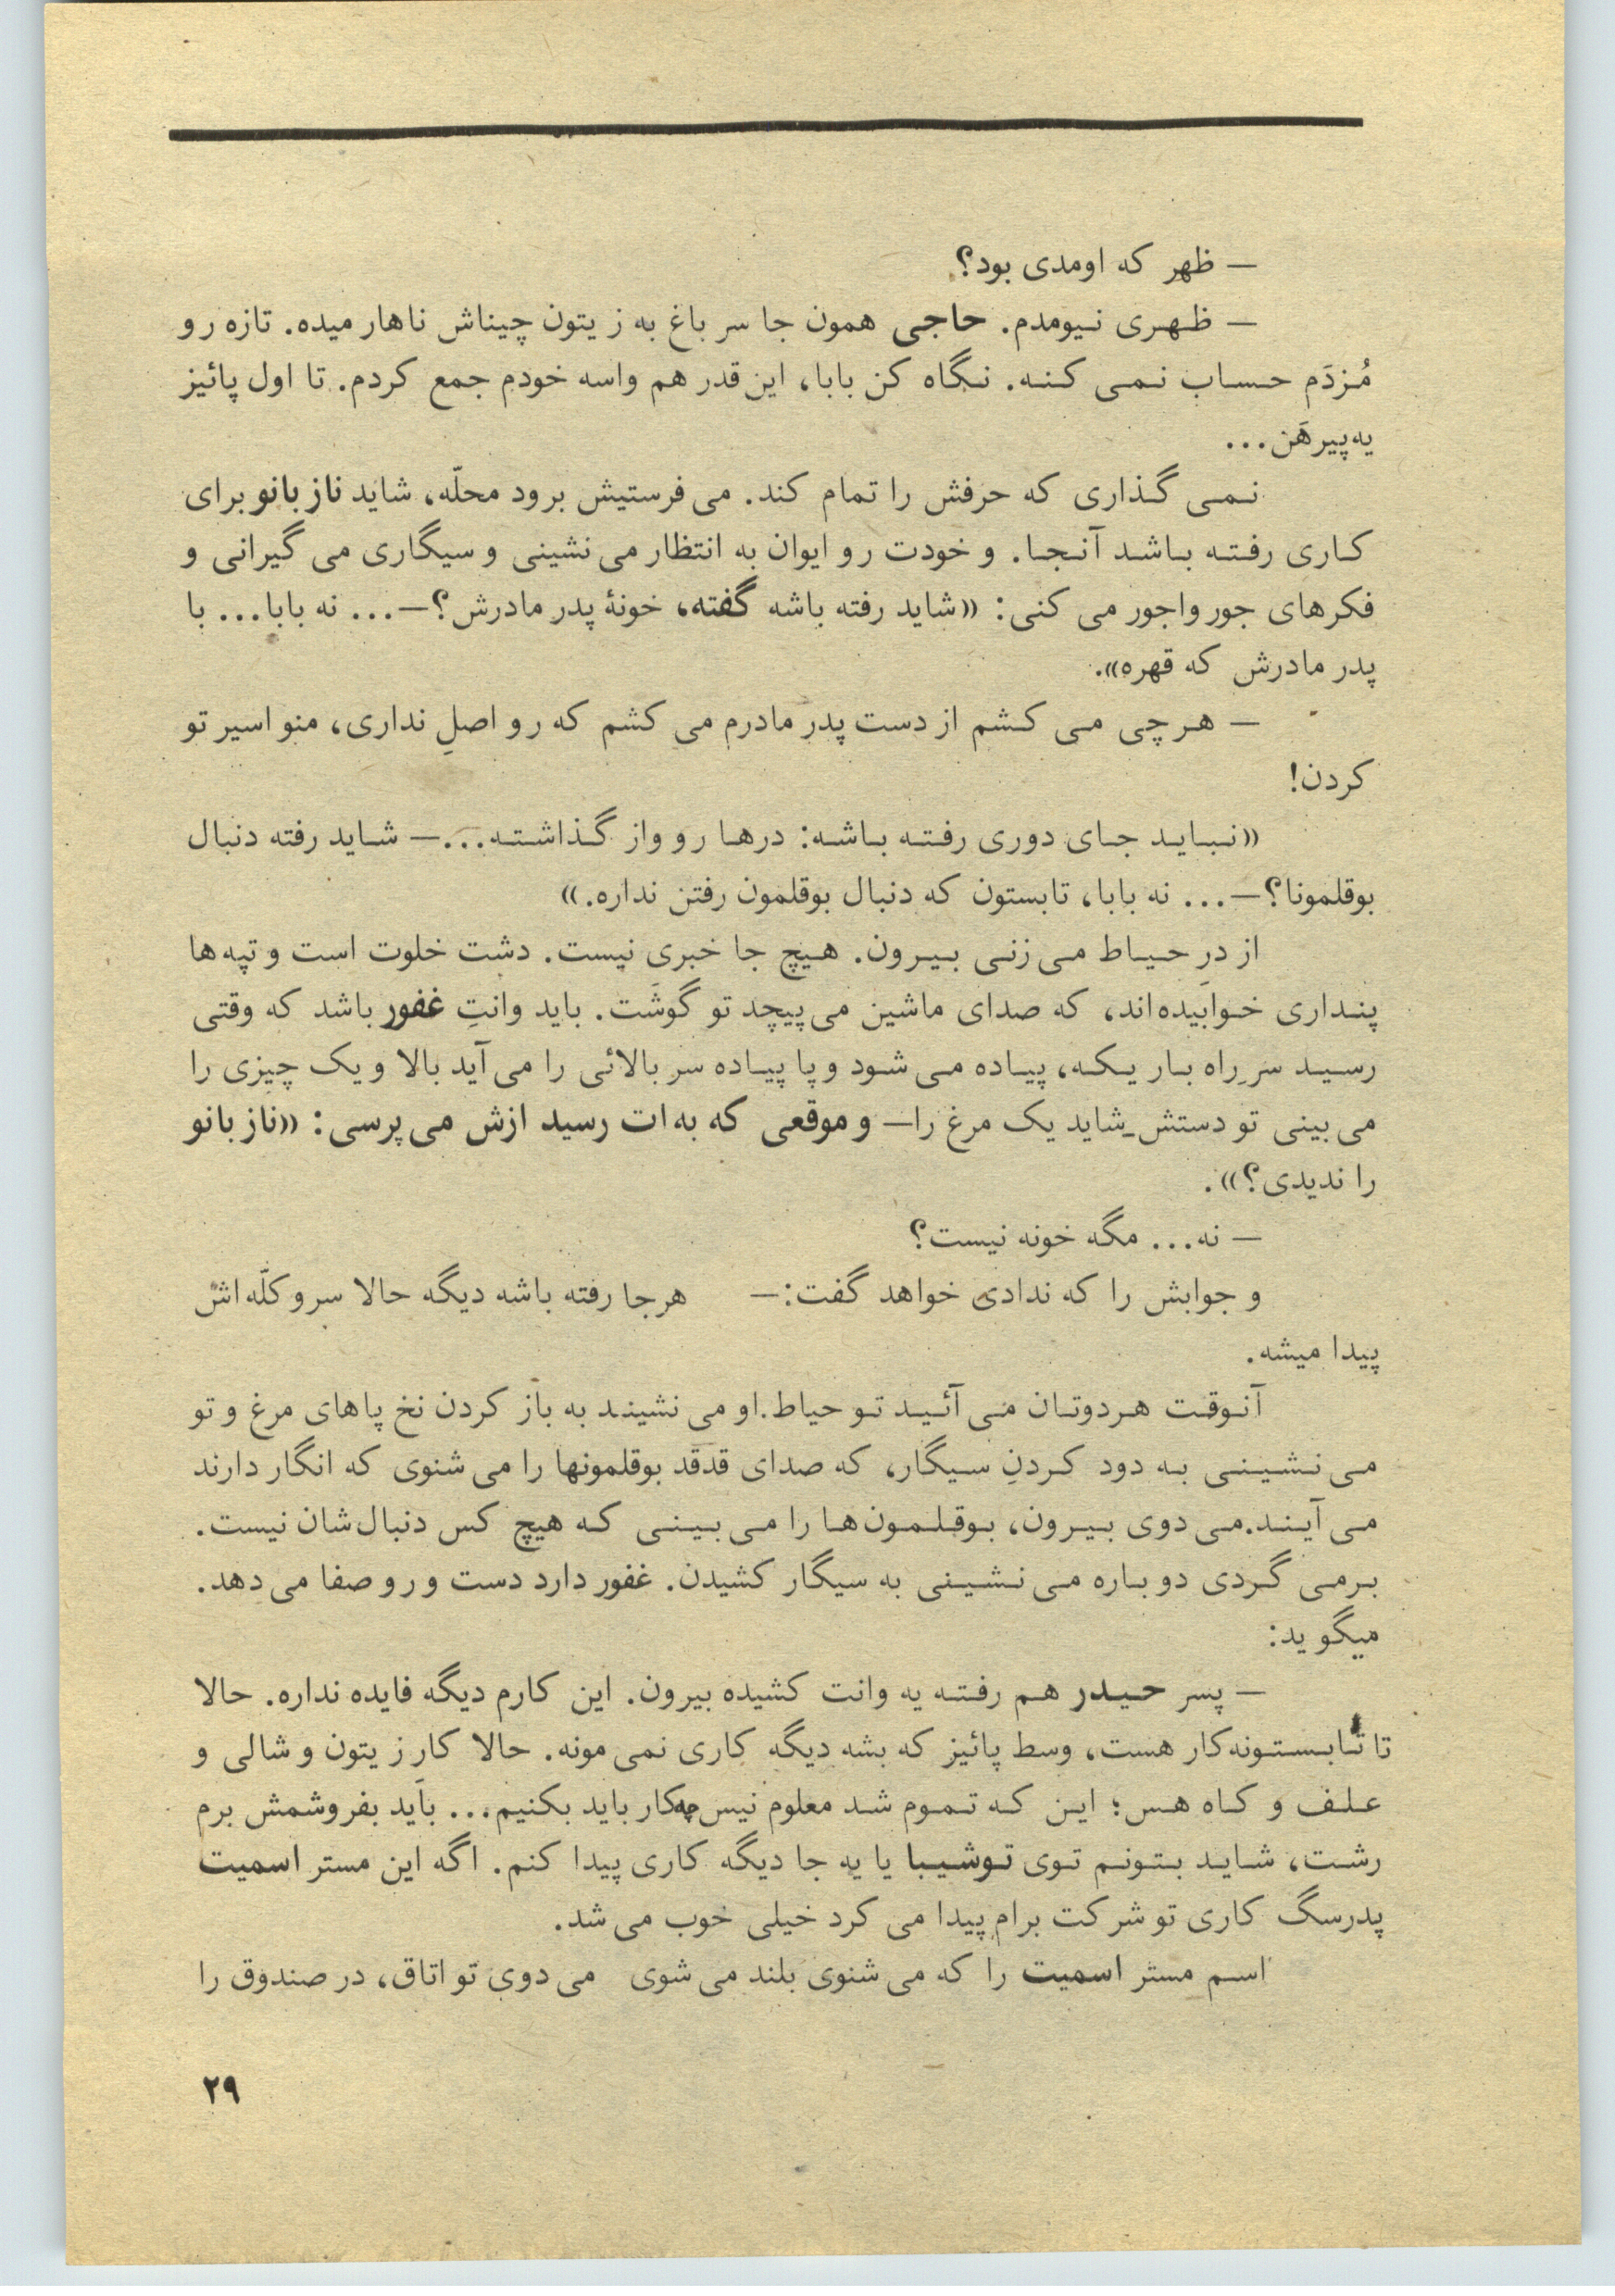 — ظهر که اومدی بود؟
— ظهری نیومدم. حاجی همون جا سر باغ به زیتون چیناش ناهار میده. تازه رو
مُزدَم حساب نمی کنه. نگاه کن بابا، این قدر هم واسه خودم جمع کردم. تا اول پائیز
یه پیرهَن...
نمی گذاری که حرفش را تمام کند. می فرستیش برود محلّه، شاید ناز بانو برای
کاری رفته باشد آنجا. و خودت رو ایوان به انتظار می نشینی و سیگاری می گیرانی و
فکرهای جور واجور می کنی: «شاید رفته باشه گفته، خونهٔ پدر مادرش؟—... نه بابا... با
پدر مادرش که قهره».
— هرچی می کشم از دست پدر مادرم می کشم که رو اصلِ نداری، منو اسیر تو
کردن!
«نباید جای دوری رفته باشه: درها رو واز گذاشته...— شاید رفته دنبال
بوقلمونا؟—... نه بابا، تابستون که دنبال بوقلمون رفتن نداره.»
از درِ حیاط می زنی بیرون. هیچ جا خبری نیست. دشت خلوت است و تپه ها
پنداری خوابیده اند، که صدای ماشین می پیچد تو گوشَت. باید وانتِ غفور باشد که وقتی
رسید سرِ راه باریکه، پیاده می شود و پا پیاده سر بالائی را می آید بالا و یک چیزی را
می بینی تو دستش_شاید یک مرغ را— و موقعی که به ات رسید ازش می پرسی: «ناز بانو
را ندیدی؟».
— نه... مگه خونه نیست؟
و جوابش را که ندادی خواهد گفت:— هرجا رفته باشه دیگه حالا سر و کلّه اش
پیدا میشه.
آنوقت هردوتان می آئید تو حیاط. او می نشیند به باز کردن نخ پاهای مرغ و تو
می نشینی به دود کردنِ سیگار، که صدای قدقد بوقلمونها را می شنوی که انگار دارند
می آیند. می دوی بیرون، بوقلمون ها را می بینی که هیچ کس دنبال شان نیست.
برمی گردی دوباره می نشینی به سیگار کشیدن. غفور دارد دست و رو صفا می دهد.
میگوید:
— پسر حیدر هم رفته یه وانت کشیده بیرون. این کارم دیگه فایده نداره. حالا
تا تابستونه کار هست، وسط پائیز که بشه دیگه کاری نمی مونه. حالا کار زیتون و شالی و
علف و کاه هس؛ این که تموم شد معلوم نیس چکار باید بکنیم... باید بفروشمش برم
رشت، شاید بتونم توی توشیبا یا یه جا دیگه کاری پیدا کنم. اگه این مستر اسمیت
پدرسگ کاری تو شرکت برام پیدا می کرد خیلی خوب می شد.
اسم مستر اسمیت را که می شنوی بلند می شوی می دوی تو اتاق، در صندوق را
۲۹